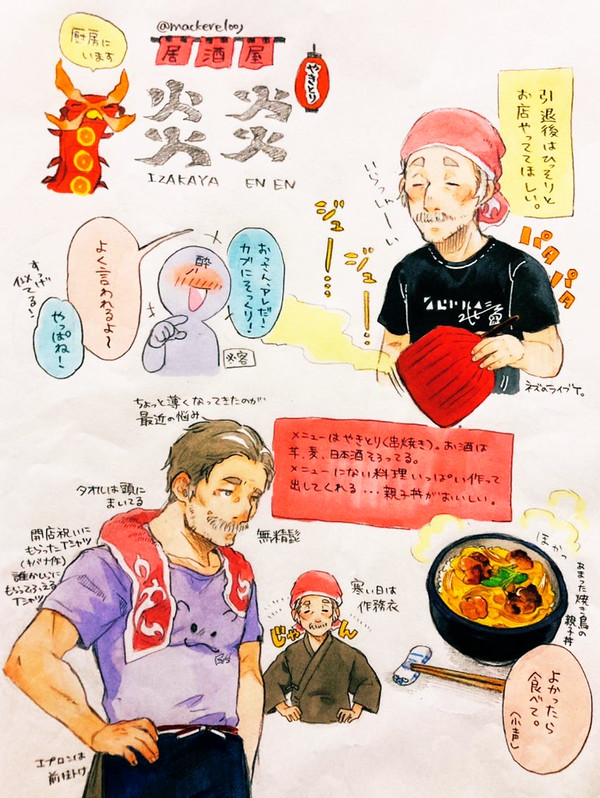 @mackerel00j
厨房に
います
居酒屋
炎炎
IZAKAYA EN EN
やきとり
引退後はひっそりと
お店やっててほしい。
いらっしゃーい
ジュー…
ジュー…
パタパタ
ネズのライブT。
おっさん、アレだ!
カブにそっくり!
酔
よく言われるよ〜
すっげ
似てる!
やっぱね!
※客
ちょっと薄くなってきたのが
最近の悩み
メニューはやきとり(串焼き)。お酒は
芋、麦、日本酒そろってる。
メニューにない料理いっぱい作って
出してくれる…親子丼がおいしい。
タオルは頭に
まいてる
無精髭
開店祝いに
もらったTシャツ
(キバナ作)
誰かしらに
もらってそろえる
Tシャツ
寒い日は
作務衣
じゃーん
ほかっ
あまった焼き鳥の
親子丼
よかったら
食べて。
(小声)
エプロンは
前掛け